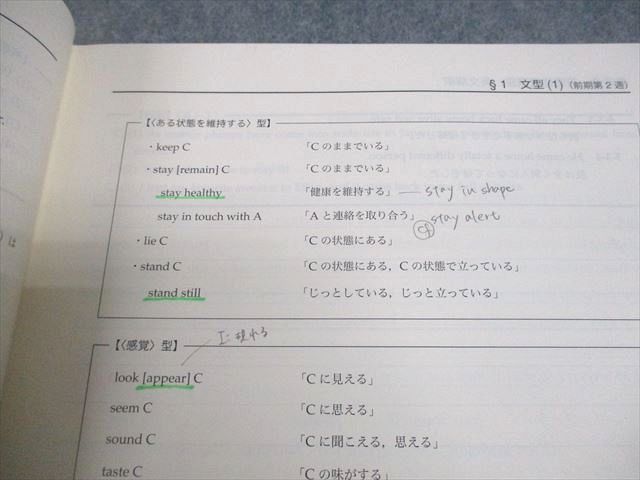 §1 文型(1)(前期第2週)
【〈ある状態を維持する〉型】
・keep C 「Cのままでいる」
・stay [remain] C 「Cのままでいる」
stay healthy 「健康を維持する」 — stay in shape
stay in touch with A 「Aと連絡を取り合う」 cf stay alert
・lie C 「Cの状態にある」
・stand C 「Cの状態にある，Cの状態で立っている」
stand still 「じっとしている，じっと立っている」
【〈感覚〉型】 I:現れる
look [appear] C 「Cに見える」
seem C 「Cに思える」
sound C 「Cに聞こえる，思える」
taste C 「Cの味がする」